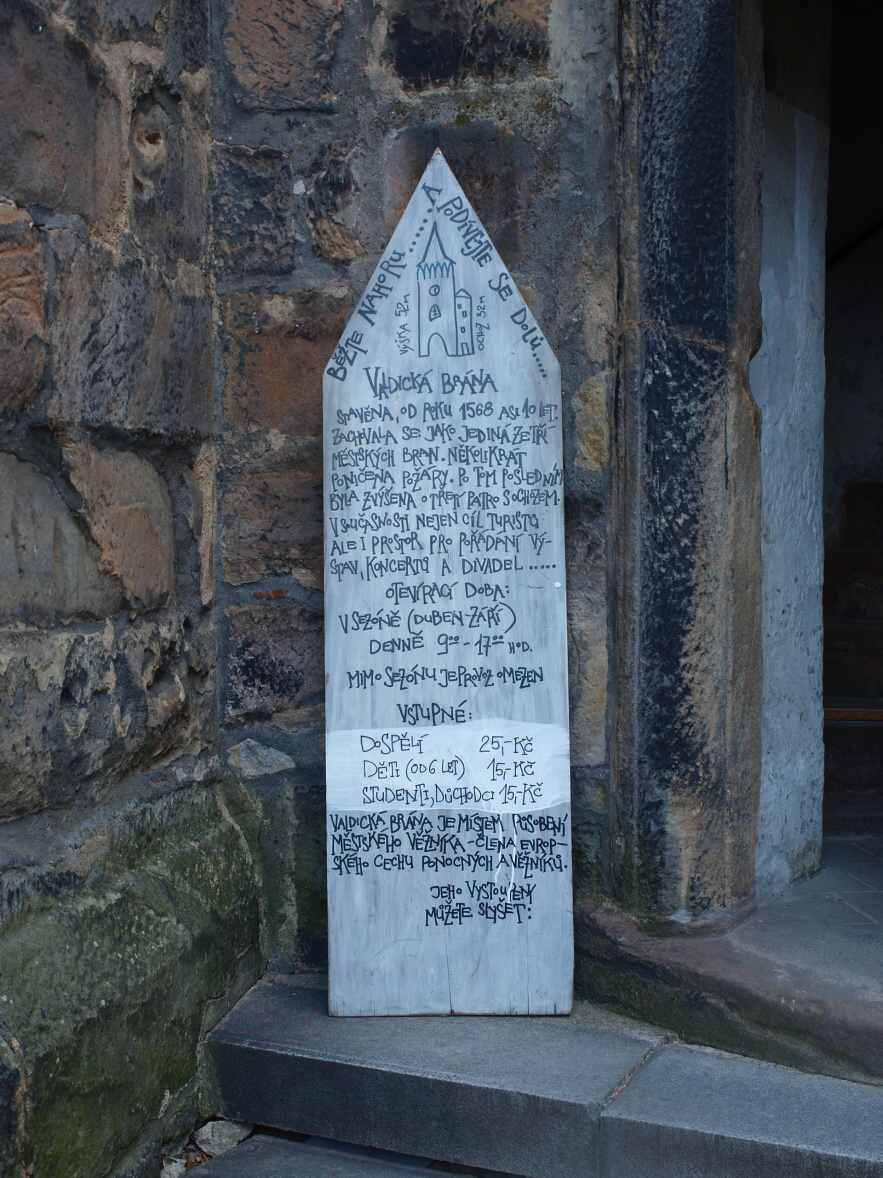 BĚŽTE NAHORU..... A PODÍVEJTE SE DOLŮ....
VÝŠKA 52m
OCHZ 32m
VALDICKÁ BRÁNA
STAVĚNA, OD ROKU 1568 ASI 10 LET.
ZACHVALA SE JAKO JEDINÁ ZE TŘÍ
MĚSTSKÝCH BRAN. NĚKOLIKRÁT
PONIČENA POŽÁRY. PO TOM POSLEDNÍM
BYLA ZVÝŠENA O TŘETÍ PATRO S OCHOZEM.
V SOUČASNOSTI NEJEN CÍL TURISTŮ
ALE I PROSTOR PRO POŘÁDÁNÍ VÝ-
STAV, KONCERTŮ A DIVADEL.....
OTEVÍRACÍ DOBA:
V SEZÓNĚ (DUBEN-ZÁŘÍ)
DENNĚ 9⁰⁰-17⁰⁰ HOD.
MIMO SEZÓNU JE PROVOZ OMEZEN
VSTUPNÉ:
DOSPĚLÍ 25,-KČ
DĚTI (OD 6 LET) 15,-KČ
STUDENTI, DŮCHODCI 15,-KČ
VALDICKÁ BRÁNA JE MÍSTEM PŮSOBENÍ
MĚSTSKÉHO VĚŽNÍKA-ČLENA EVROP-
SKÉHO CECHU PONOCNÝCH A VĚŽNÍKŮ.
JEHO VYSTOUPENÍ
MŮŽETE SLYŠET: